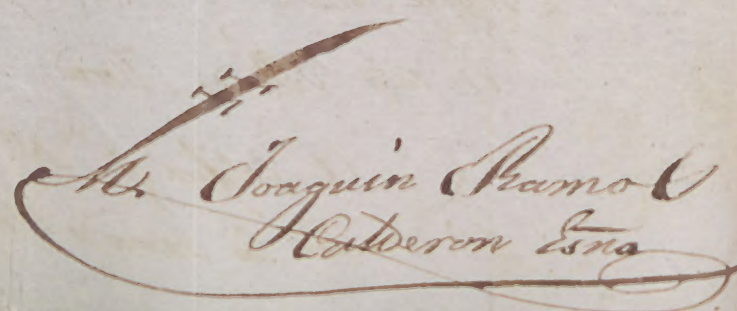 M. Joaquin Ramos
Calderon Esno